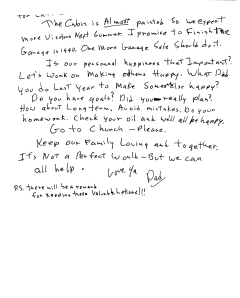 The Cabin is Almost painted so we expect
more Visitors Next Summer. I promise to Finish the
Garage in 1990. One More Garage Sale Should do it.
Is our personal happiness that Important?
Let's work on Making others Happy. What Did
you do Last Year to Make Someone else happy?
Do you have goals? Did you really plan?
How about Long Term. Avoid mistakes. Do your
homework. Check your oil and we'll all be happy.
Go to Church - Please.
Keep our Family Loving and together.
It's Not a Perfect World - But we can
all help.
Love Ya
Dad
P.S. there will be a reward
for Keeping these Valuable